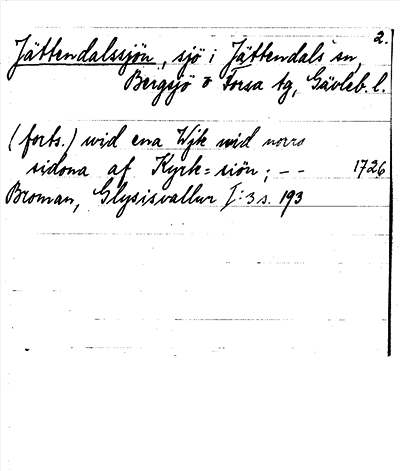 2.
Jättendalssjön, sjö i Jättendals sn,
Bergsjö o Forsa tg, Gävleb. l.
(forts.) wid ena Wjk wid norra
sidona af Kyrk=siön; - - 1726
Broman, Glysisvallur I:3 s. 193